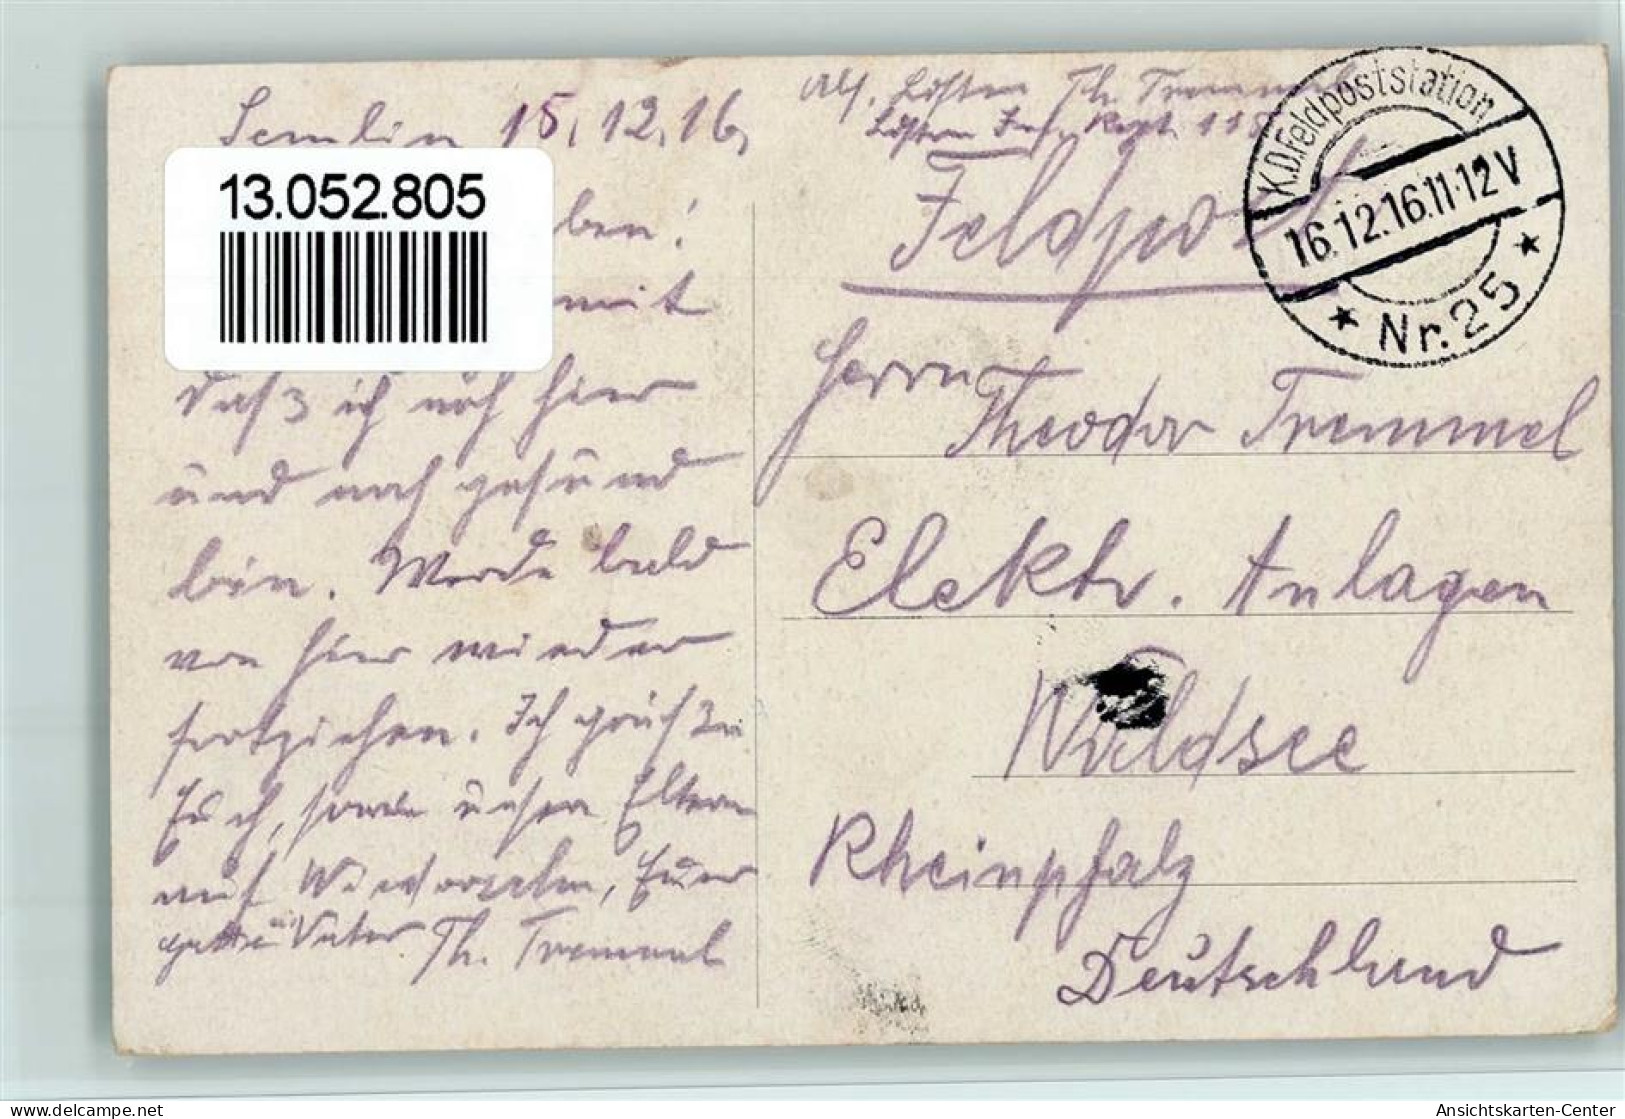 Semlin 15.12.16.
13.052.805
ben!
mit
daß ich noch hier
und noch gesund
bin. Werde bald
von hier wieder
fortziehen. Ich grüße
Euch, sowie unsere Eltern
auf Wiedersehen, Euer
Vater Th. Tremmel
Abs. Th. Tremmel
Inf. Regt. 118
Feldpost
K.D.Feldpoststation
16.12.16.11-12V
* Nr. 25 *
Herrn
Theodor Tremmel
Elektr. Anlagen
Waldsee
Rheinpfalz
Deutschland
delcampe.net
Ansichtskarten-Center